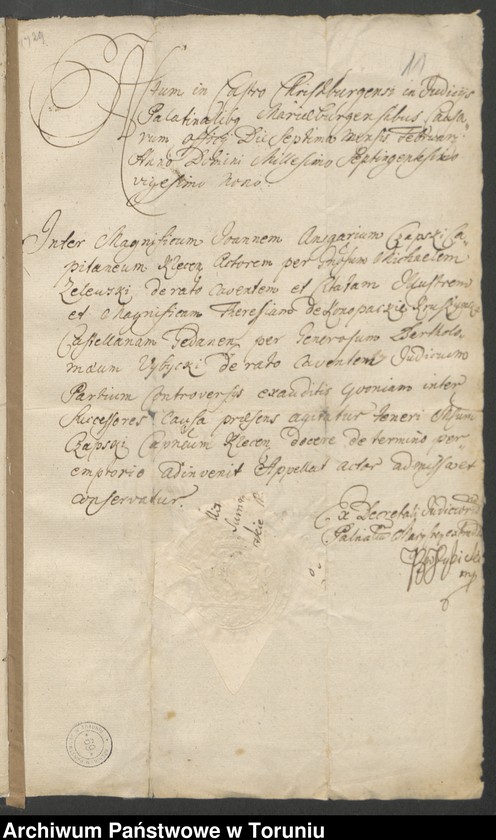 1729.
11
Actum in Castro Christburgensi in Judicijs
Palatinalibg Marieburgensibus Causa-
rum officij Die Septima Mensis Februarij
Anno Domini Millesimo Septingentesimo
vigesimo nono.
Inter Magnificum Joannem Ansgarium Czapski Ca-
pitaneum Klecen Actorem per Michaelem
Zelewski de rato Caventem et Citatam Illustrem
et Magnificam Theresiam de Konopackie
Castellanam Gedanen per Generosum Bartholo-
mæum Wybycki de rato Caventem Judicium
Partium Controversijs exauditis quoniam inter
Successores Causa præsens agitatur teneri
Czapski Capneum Klecen docere de termino per-
emptorio adinvenit Appellat actor admissa et
conservatur.
Ex Decretali Judiciorum
mp
Archiwum Państwowe w Toruniu